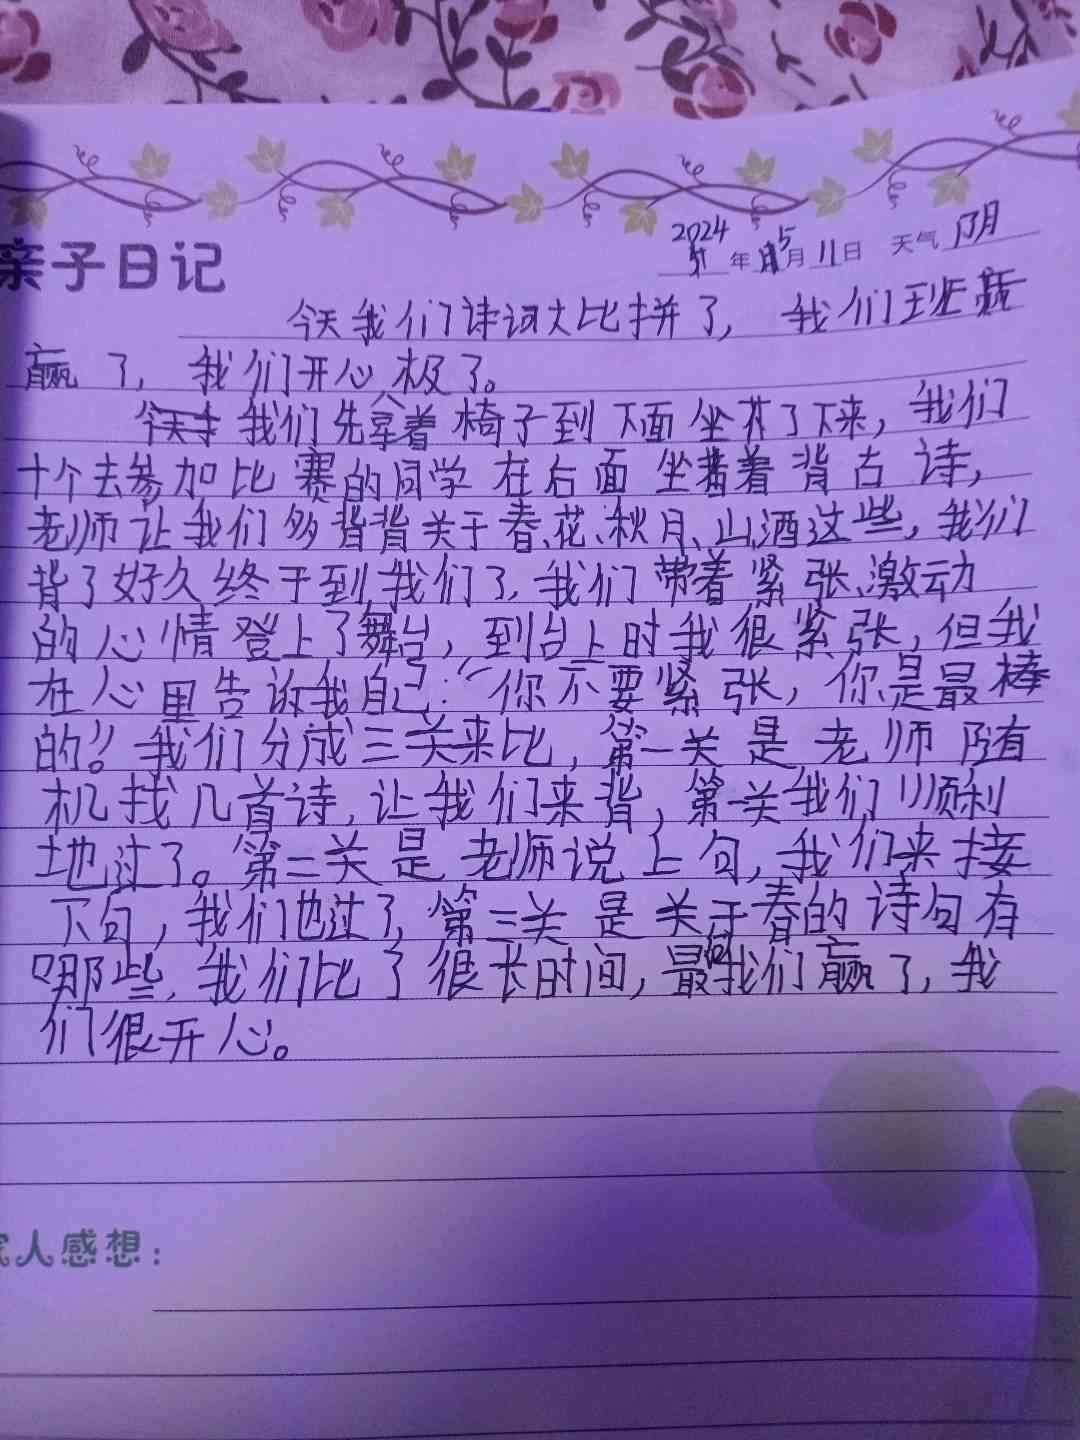 2024年5月11日 天气 阴
亲子日记
今天我们诗词大比拼了，我们班
赢了，我们开心极了。
我们先拿着椅子到下面坐了下来，我们
十个去参加比赛的同学在右面坐着背古诗，
老师让我们多背背关于春、花、秋、月、山、酒这些，我们
背了好久终于到我们了，我们带着紧张、激动
的心情登上了舞台，到台上时我很紧张，但我
在心里告诉我自己：“你不要紧张，你是最棒
的”。我们分成三关来比，第一关是老师随
机找几首诗，让我们来背，第一关我们顺利
地过了。第二关是老师说上句，我们来接
下句，我们也过了，第三关是关于春的诗句有
哪些，我们比了很长时间，最后我们赢了，我
们很开心。
人感想：